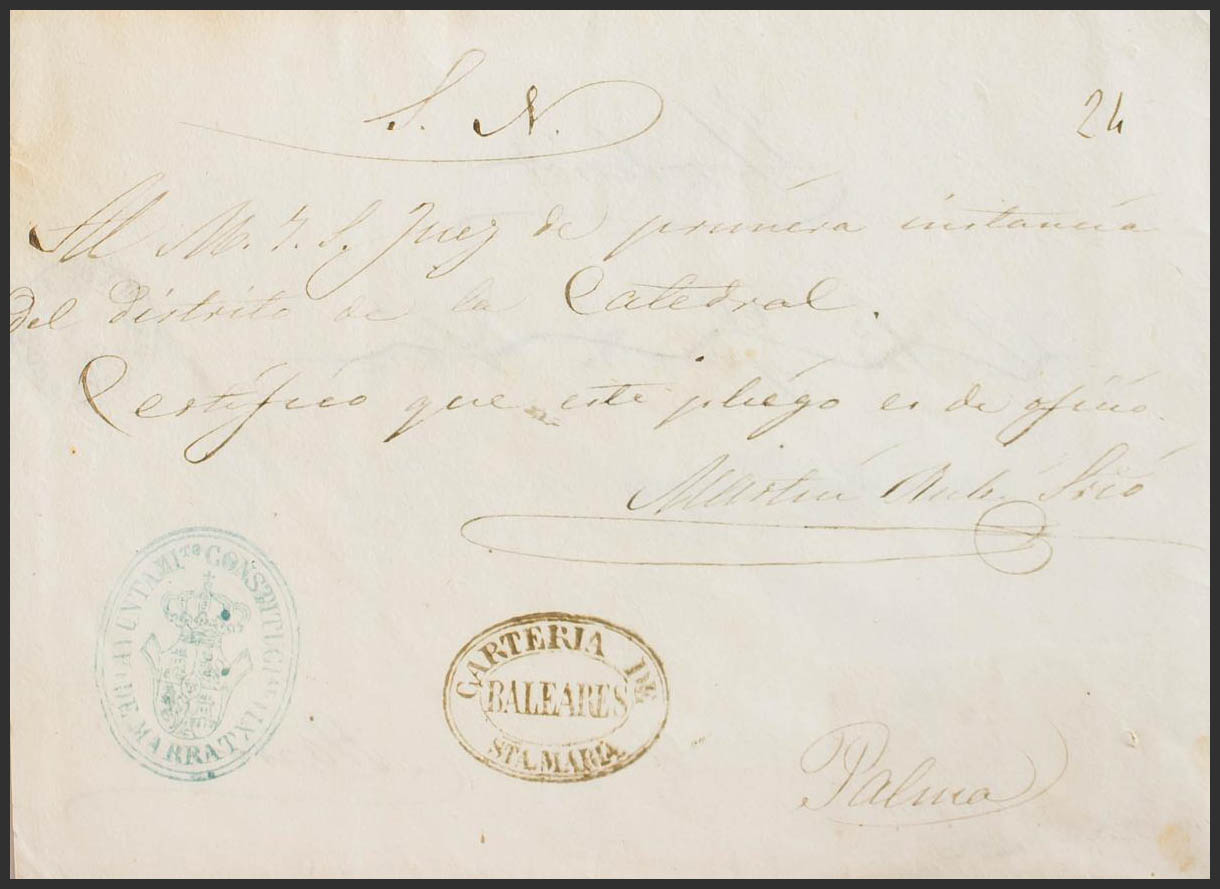 S. N.
24
Al M. Y. S. Juez de primera instancia
del distrito de la Catedral.
Certifico que este pliego es de oficio.
Martin Srio
AYUNTAMITO CONSTITUCIONAL DE MARRATXI
CARTERIA DE
BALEARES
STA. MARIA
Palma